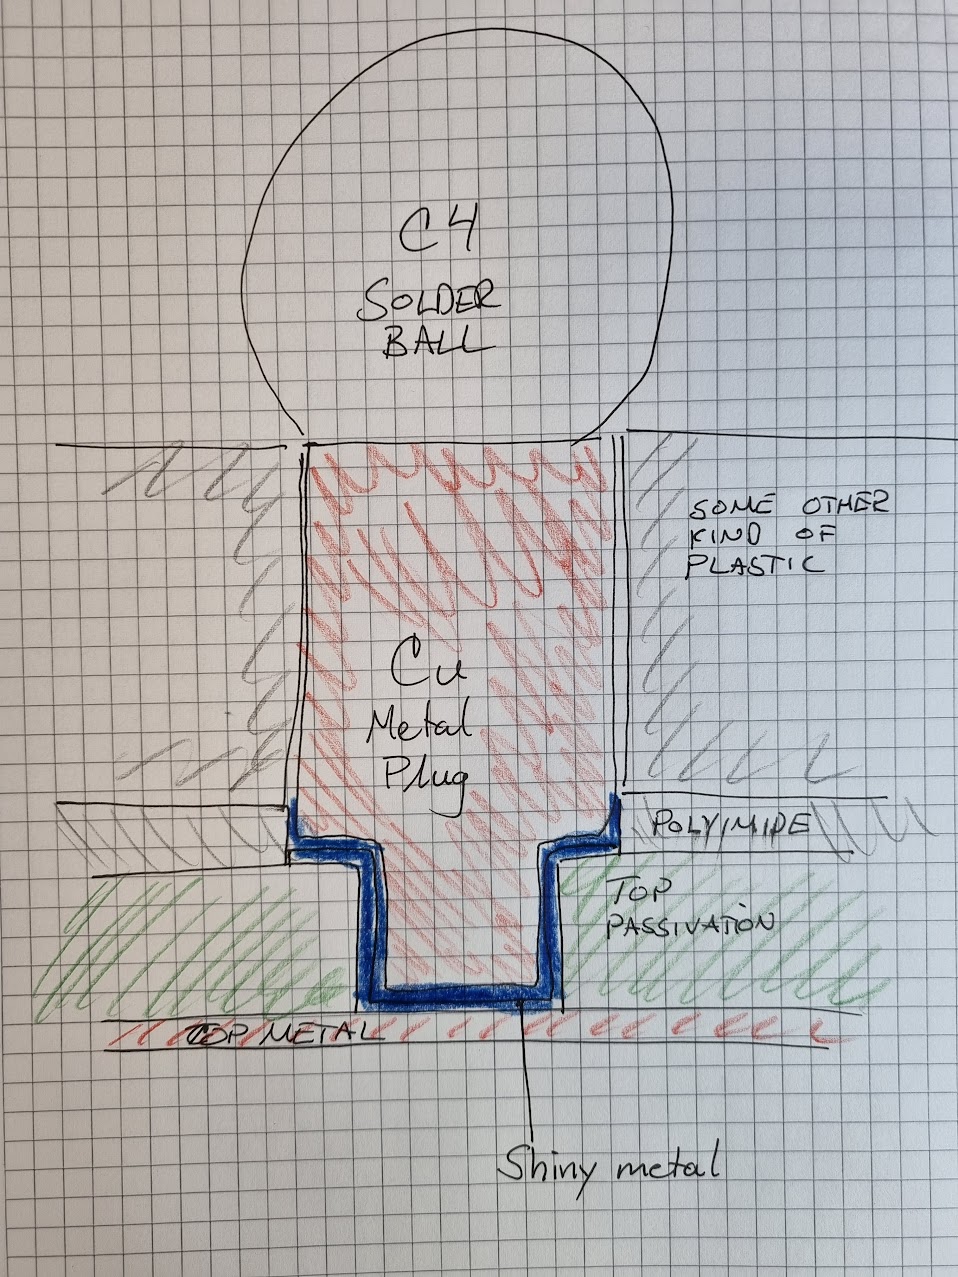 C4
SOLDER
BALL
SOME OTHER
KIND OF
PLASTIC
Cu
Metal
Plug
POLYIMIDE
TOP
PASSIVATION
TOP METAL
Shiny metal